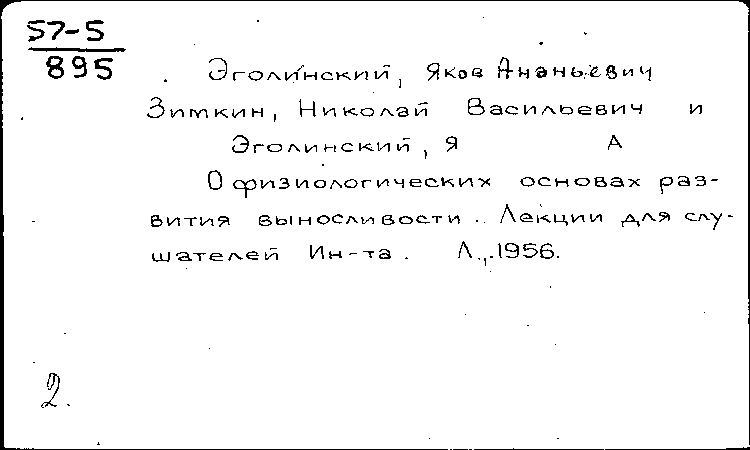 57-5
895
Эголинский, Яков Ананьевич
Зимкин, Николай Васильевич и
Эголинский, Я А
О физиологических основах раз-
вития выносливости. Лекции для слу-
шателей Ин-та. Л., 1956.
2.